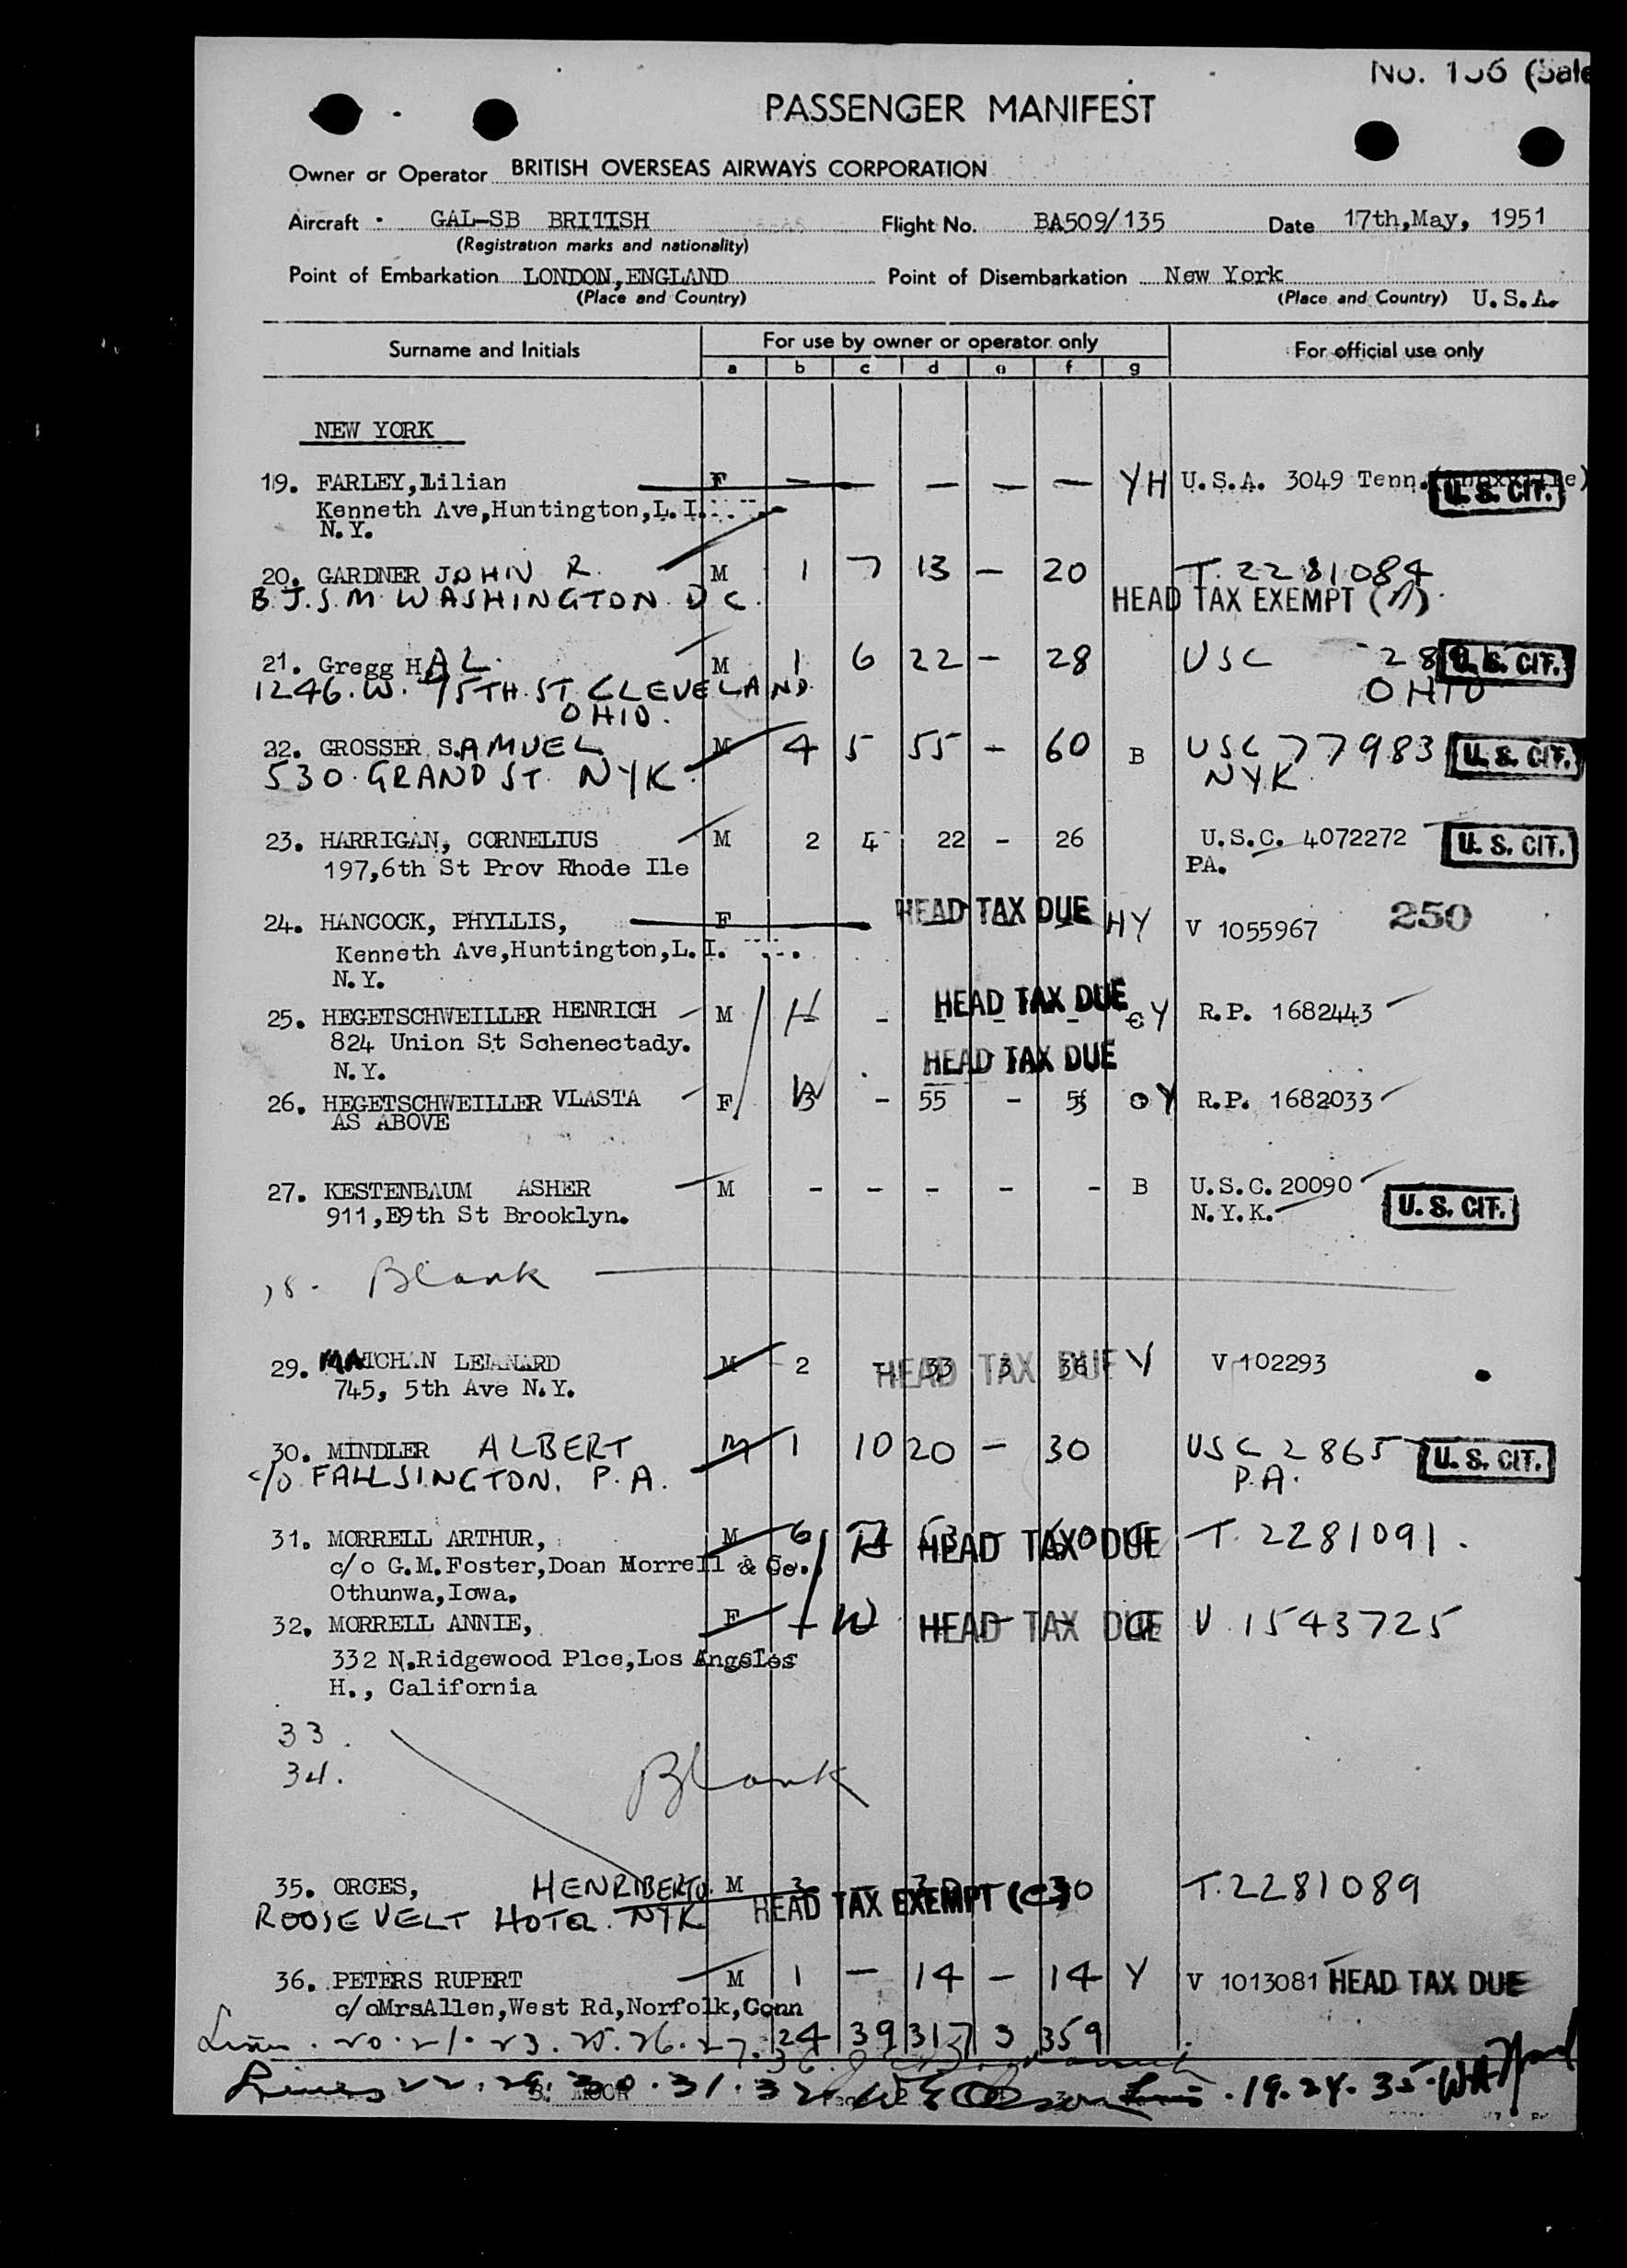 PASSENGER MANIFEST
Owner or Operator BRITISH OVERSEAS AIRWAYS CORPORATION
Aircraft GAL-SB BRITISH Flight No. BA509/135 Date 17th,May, 1951
(Registration marks and nationality)
Point of Embarkation LONDON,ENGLAND Point of Disembarkation New York
(Place and Country) (Place and Country) U.S.A.
Surname and Initials For use by owner or operator only For official use only
a b c d e f g
NEW YORK
19. FARLEY,Lilian F — — — — YH U.S.A. 3049 Tenn. U. S. CIT.
Kenneth Ave,Huntington,L.I.
N.Y.
20. GARDNER JOHN R. M 1 7 13 — 20 T. 2281084
B.J.S.M. WASHINGTON D C. HEAD TAX EXEMPT
21. Gregg HAL. M 1 6 22 — 28 USC U. S. CIT.
1246. W. 95TH. ST CLEVELAND. OHIO
OHIO.
22. GROSSER S.AMUEL M 4 5 55 — 60 B USC 77983 U. S. CIT.
530. GRAND ST. NYK. NYK.
23. HARRIGAN, CORNELIUS M 2 4 22 - 26 U.S.C. 4072272 U. S. CIT.
197,6th St Prov Rhode Ile PA.
24. HANCOCK, PHYLLIS, F HEAD TAX DUE HY V 1055967 250
Kenneth Ave,Huntington,L.I.
N.Y.
25. HEGETSCHWEILLER HENRICH M H - HEAD TAX DUE Y R.P. 1682443
824 Union St Schenectady.
N.Y. HEAD TAX DUE
26. HEGETSCHWEILLER VLASTA F W - 55 - Y R.P. 1682033
AS ABOVE
27. KESTENBAUM ASHER M - - - - - B U.S.C. 20090
911,E9th St Brooklyn. N.Y.K. U. S. CIT.
Blank
29. M 2 33 3 36 HEAD TAX DUE Y V 102293
745, 5th Ave N.Y.
30. MINDLER ALBERT M 1 10 20 — 30 USC 2865 U. S. CIT.
c/o FALLSINGTON. P.A. P.A.
31. MORRELL ARTHUR, M 6 HEAD TAX DUE T. 2281091.
c/o G.M.Foster,Doan Morrell & Co.
Othunwa,Iowa.
32. MORRELL ANNIE, F W HEAD TAX DUE V. 1543725
332 N.Ridgewood Plce,Los Angeles
H., California
33.
34. Blank
35. ORGES, HENRIBERTO. M 3 — 30 T.2281089
ROOSEVELT HOTEL. NYK HEAD TAX EXEMPT (C)
36. PETERS RUPERT M 1 — 14 — 14 Y V 1013081 HEAD TAX DUE
c/oMrsAllen,West Rd,Norfolk,Conn
Lines. 20. 21. 23. 25. 26. 27. 36. 24 39 317 3 359
Lines 22. 29. 30. 31. 32. 19. 24. 35.